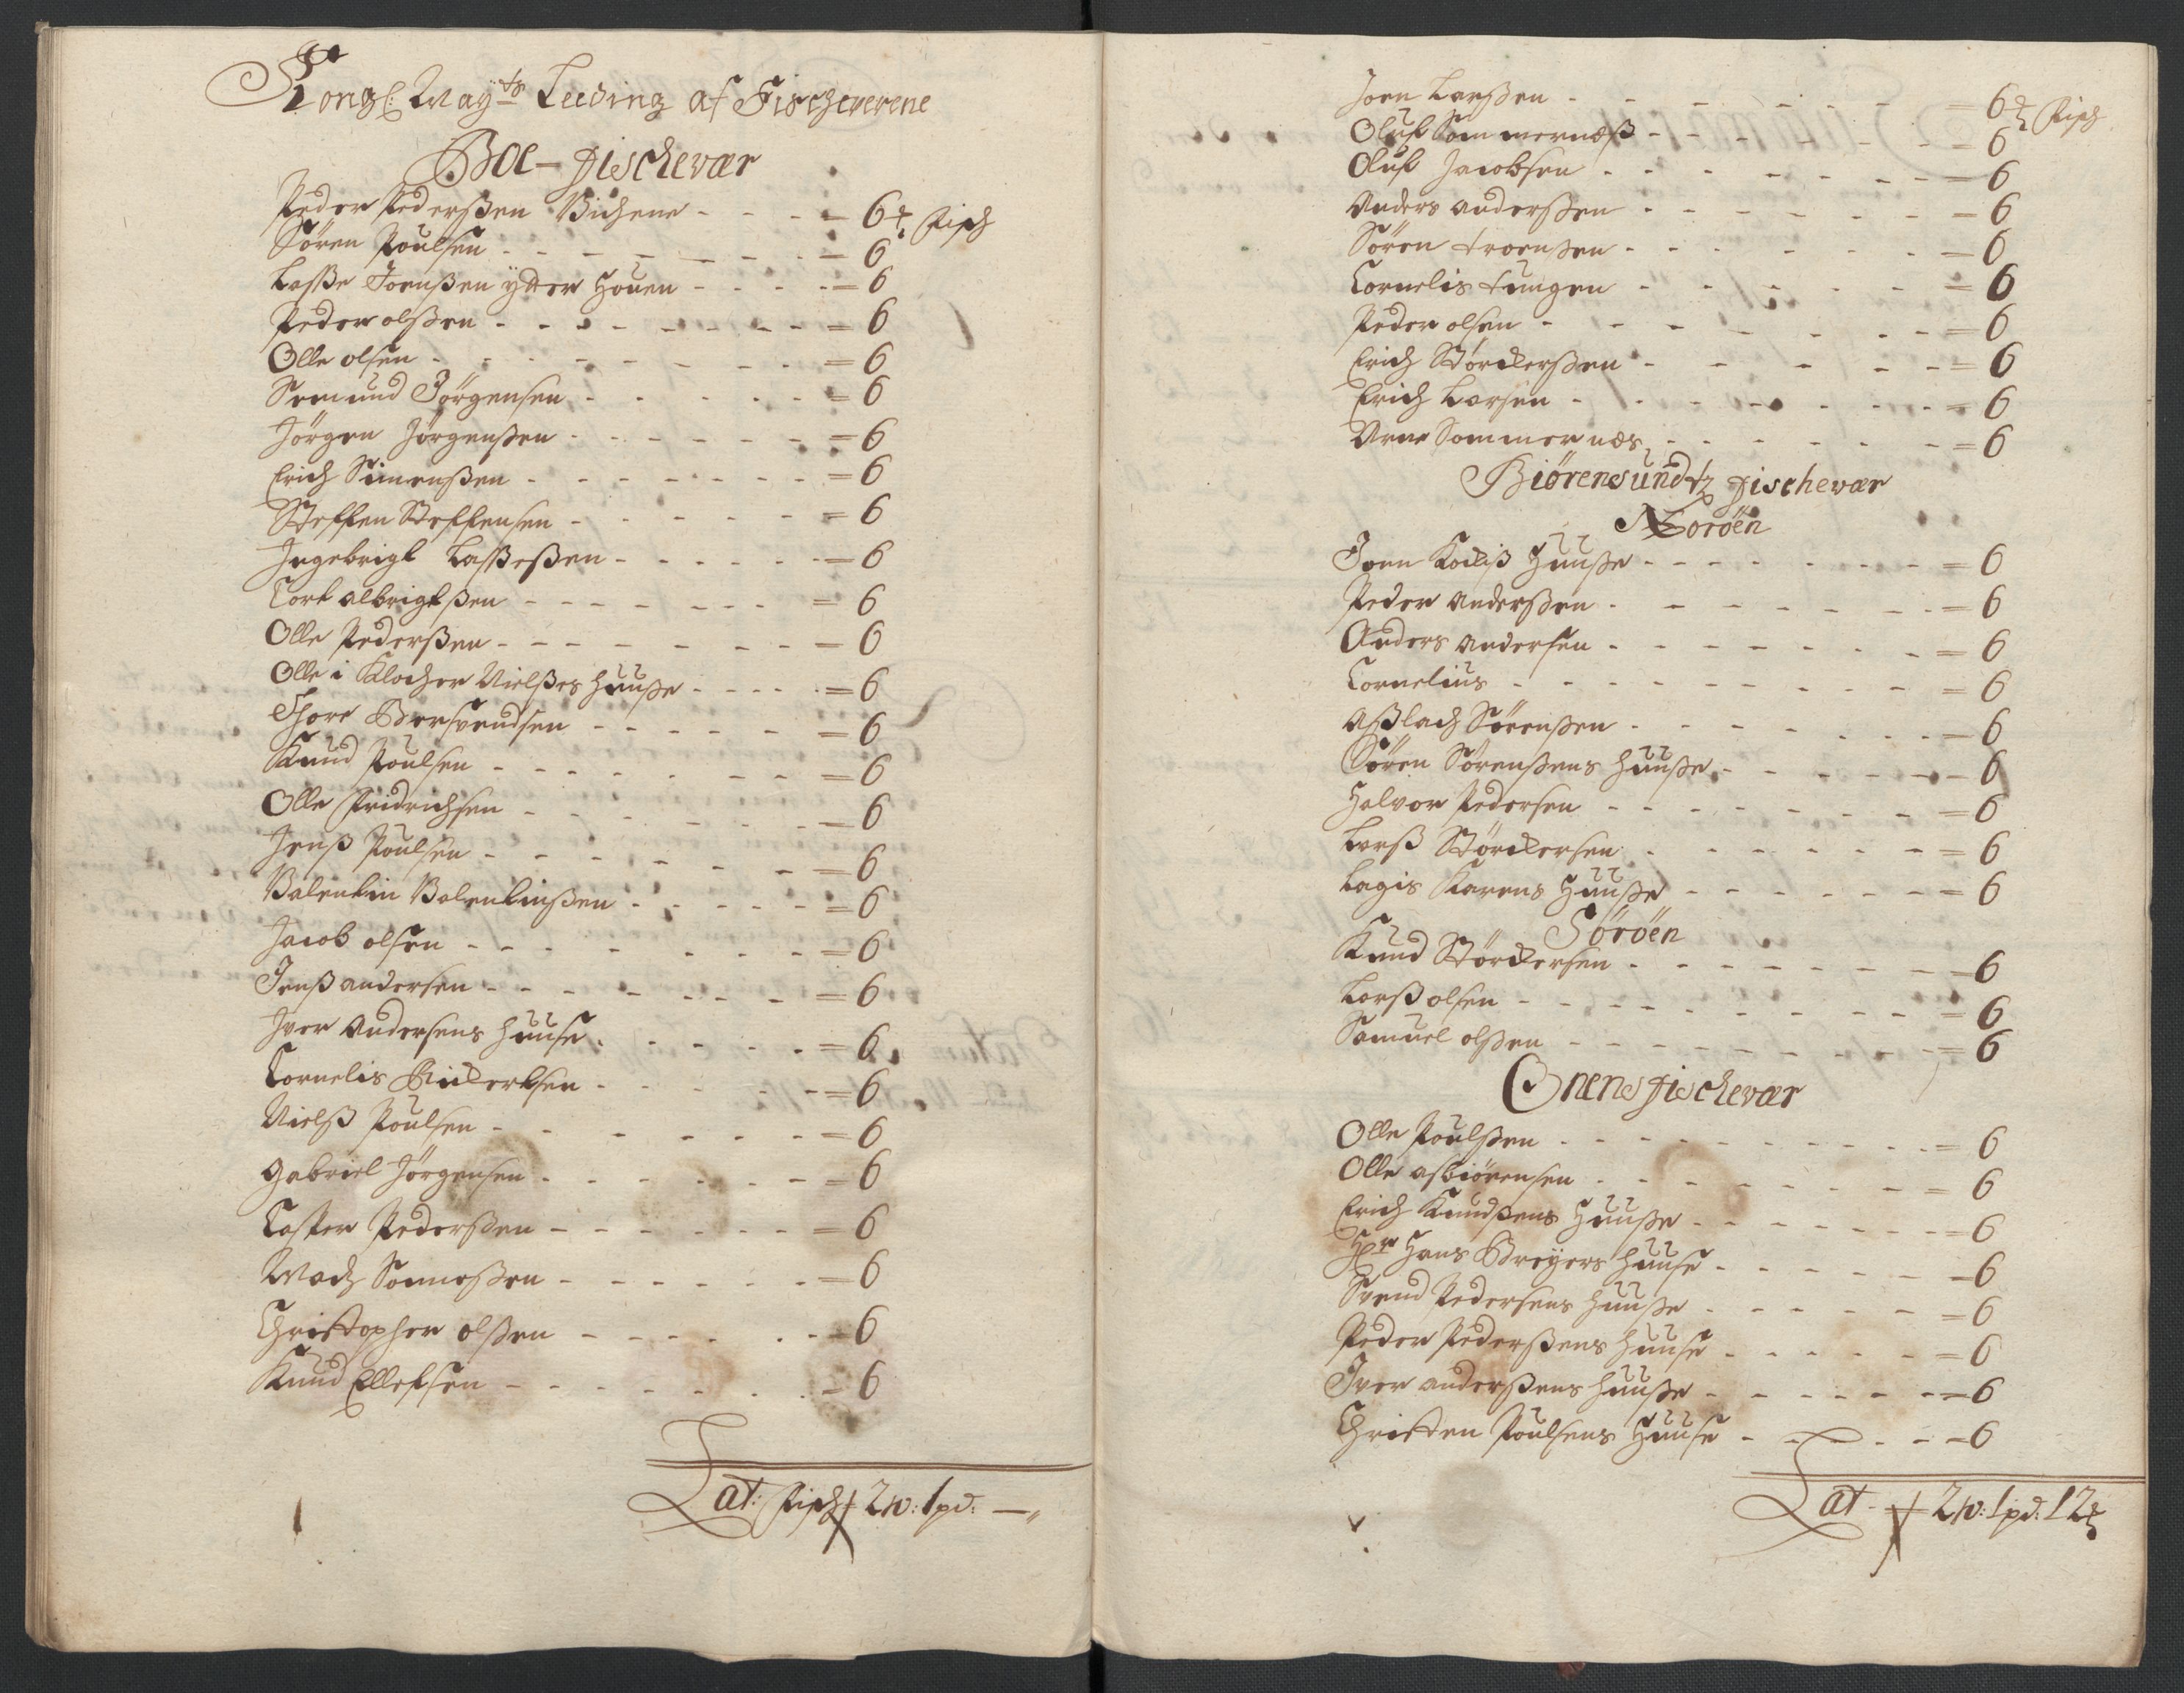 Kongl: Mayts Leeding af Fischeverene
Boe- fischevær
Peder Pederßen Vichene - - - - 6 ℔ Fisch
Sören Poulsen - - - - - - - = 6
Laße Joenßen ytter Houen - - - - = 6
Peder olßen - - - - - - - - = 6
Olle olsen - - - - - - - - = 6
Semund Jörgensen - - - - - = 6
Jörgen Jörgenßen - - - - - - = 6
Erich Simenßen - - - - - - - = 6
Steffen Steffensen - - - - - = 6
Ingebrigt Laßeßen - - - - - = 6
Tort albrigtßen - - - - - - - = 6
Olle Pederßen - - - - - - - = 6
Olle i Klocher Nielßes huuße - - - - = 6
Thore Bersvendsen - - - - - = 6
Knud Poulsen - - - - - - - = 6
Olle Fridrichsen - - - - - - = 6
Jenß Poulsen - - - - - - = 6
Valentin Valentinßen - - - - - = 6
Jacob olsen - - - - - - - = 6
Jenß andersen - - - - - - - = 6
Iver Andersens huuse - - - - = 6
Cornelis Rickertsen - - - - - = 6
Nielß Poulsen - - - - - - = 6
Gabriel Jörgensen - - - - - - = 6
Casper Pederßen - - - - - - = 6
Mads Sonneßen - - - - - - = 6
Christopher olßen - - - - - - 6
Knud Ellefsen - - - - - - - = 6
Lat: Fisch 2 w: 1 pd: — „
Joen Larßen - - - - - - - = 6 ℔ Fisch
Oluf Sommernæß - - - - - - = 6
Oluf Jacobsen - - - - - - - = 6
Anders anderßen - - - - - - = 6
Sören troenßen - - - - - - = 6
Cornelis tungen - - - - - - = 6
Peder olsen - - - - - - - = 6
Erich Störckerßen - - - - - = 6
Erich Larsen - - - - - - - = 6
Arne Sommernæs - - - - - - = 6
Biörensundtz fischevær
Noröen
Joen Kockiß Huuße - - - - - - - = 6
Peder Anderßen - - - - - - - = 6
Anders Andersen - - - - - - = 6
Cornelius - - - - - - - - = 6
Aßlach Sörenßen - - - - - - = 6
Sören Sörenßens huuße - - - - - = 6
Halvor Pedersen - - - - - - - = 6
Larß Störckersen - - - - - - = 6
Lagis Karens Huuße - - - - - - = 6
Söröen
Knud Störckersen - - - - - - - = 6
Larß olsen - - - - - - - - = 6
Samuel olßen - - - - - - - - = 6
Onens fischevær
Olle Poulßen - - - - - - - - = 6
Olle asbiörensen - - - - - - - = 6
Erich Knudßens Huuße - - - - - = 6
Hr Hans Breyers huuse - - - - - = 6
Svend Pedersens huuße - - - - - = 6
Peder Pederßens huuse - - - - - = 6
Iver anderßens huuße - - - - - = 6
Christen Poulsens Huuse - - - - - = 6
Lat - 2 w: 1 pd: 12 ℔